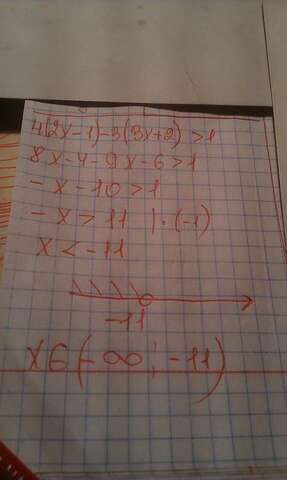 4(2x-1)-3(3x+2)>1
8x-4-9x-6>1
-x-10>1
-x>11 |·(-1)
x<-11
-11
x∈(-∞; -11)